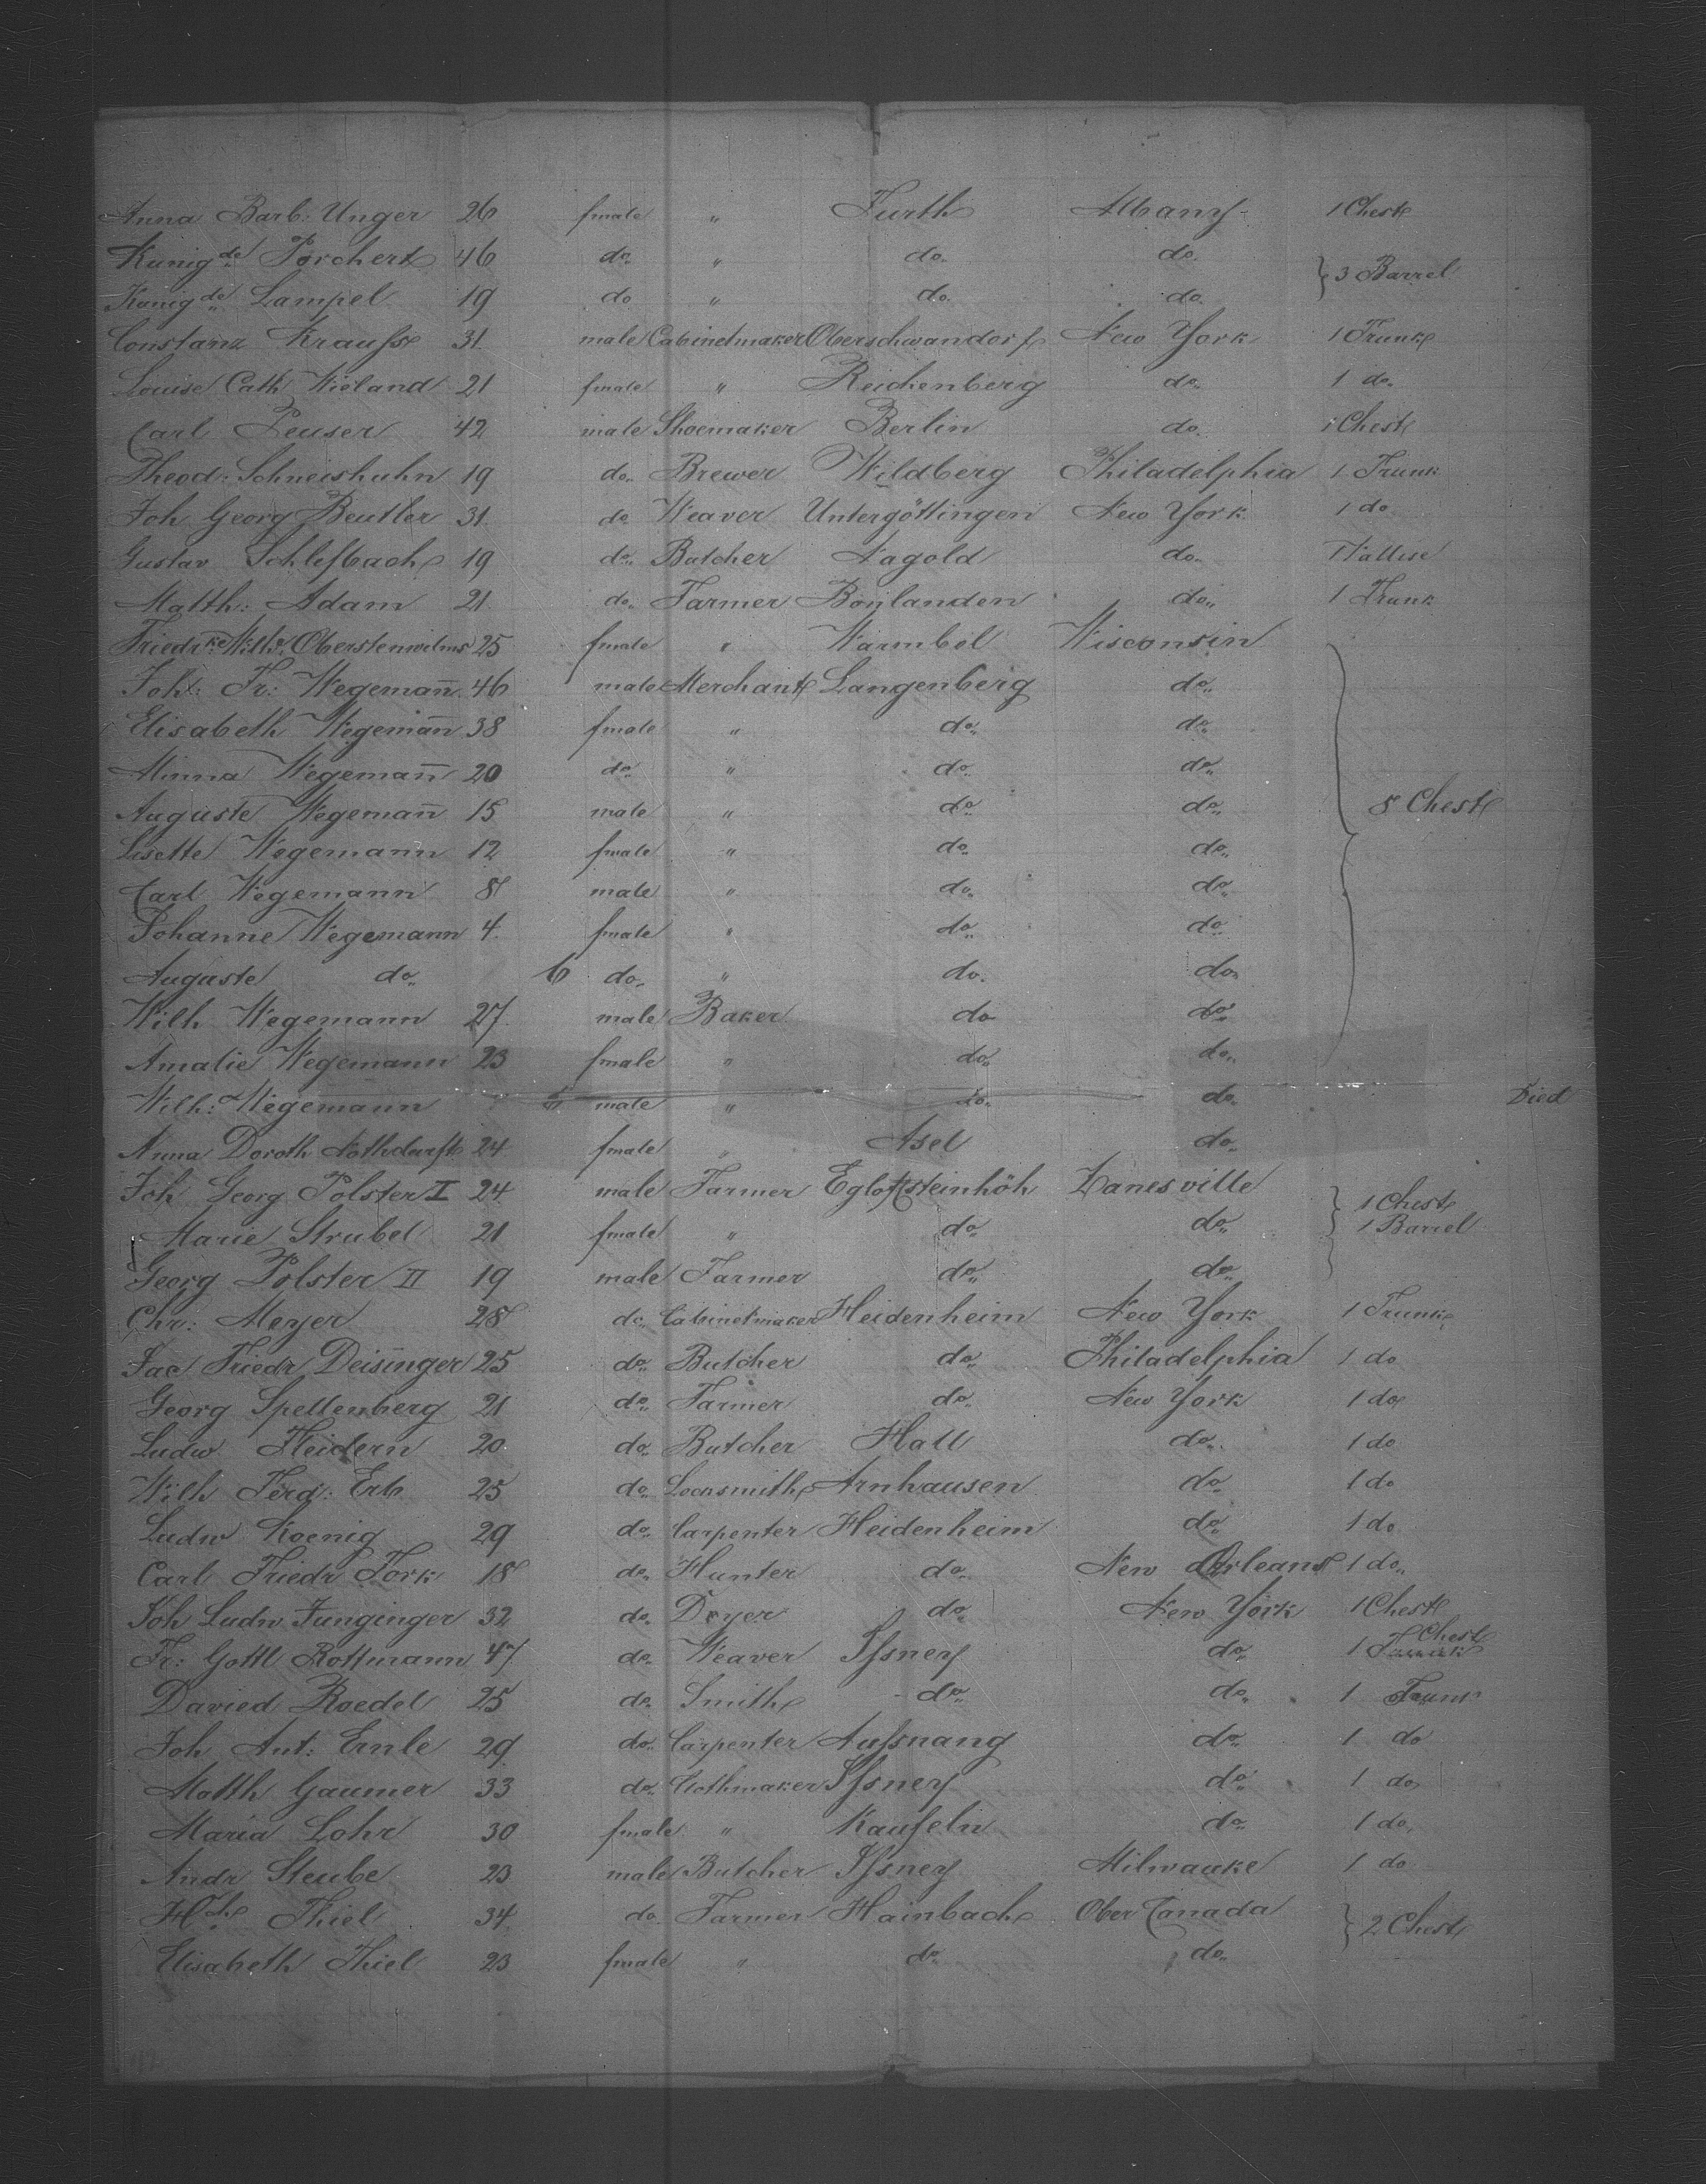 Anna Barb: Unger 26 fmale " Furth Albany 1 Chest
Kunigde Porchert 46 do. " do. do. } 3 Barrel
Kunigde Lampel 19 do " do. do.
Constanz Krauss 31. male Cabinetmaker Oberschwandorf New York 1 Trunk
Louise Cath Wieland 21 fmale " Reichenberg do. 1 do.
Carl Peuser 42 male Shoemaker Berlin do. 1 Chest
Theod: Schneishuhn 19 do. Brewer Wildberg Philadelphia 1 Trunk
Joh Georg Beutler 31. do Weaver Untergöttingen New York 1 do
Gustav Schlefbach 19 do. Butcher Nagold do. 1 Vallise
Matth: Adam 21. do. Farmer Bonlanden do. 1 Trunk
Friedrke Wilhe. Oberstenwilms 25 fmale " Warmbel Wisconsin
Joh: Fr: Wegemañ 46 male Merchant Langenberg do.
Elisabeth Wegemañ 38 fmale " do. do.
Minna Wegemañ 20 do. " do. do.
Auguste Wegemañ 15 male " do. do. } 8 Chest
Lisette Wegemann 12 fmale " do. do.
Carl Wegemann 8 male " do. do.
Johanne Wegemann 4. fmale " do. do.
Auguste do. 6 do. " do. do.
Wilh Wegemann 27. male Baker do do
Amalie Wegemann 23 fmale " do. do.
Wilh: Wegemann male " do. do. Died
Anna Doroth Nothdurft 24 fmale " Asel do.
Joh Georg Polster I 24 male Farmer Egloffsteinhöh Zanesville } 1 Chest
Marie Strubel 21 fmale " do. do. } 1 Barrel
Georg Polster II 19 male Farmer do. do.
Chr: Meyer 28 do. Cabinetmaker Heidenheim New York 1 Trunk
Jac Friedr Deisinger 25 do. Butcher do. Philadelphia 1 do
Georg Spellenberg 21 do. Farmer do. New York 1 do
Ludw Heidern 20. do. Butcher Hall do. 1 do
Wilh Ferd: Erb 25 do. Locksmith Arnhausen do. 1 do
Ludw Koenig 29 do. Carpenter Heidenheim do. 1 do
Carl Friedr Fork 18 do. Hunter do. New Orleans 1 do.
Joh Ludw Junginger 32 do. Deyer do. New York 1 Chest
Fr: Gottl Rottmann 47 do. Weaver Issney do. 1 Chest
Davied Roedel 25 do. Smith do. do. 1 Trunk
Joh Ant: Ernle 29. do. Carpenter Aussnang do. 1 do
Matth Gaumer 33 do. Clothmaker Issney do. 1 do
Maria Lohr 30 fmale " Kaufeln do. 1 do.
Andr Steube 23 male Butcher Issney Milwauke 1 do
Hch Thiel 34. do. Farmer Hainbach Ober Canada } 2 Chest
Elisabeth Thiel 23 fmale " do. do.